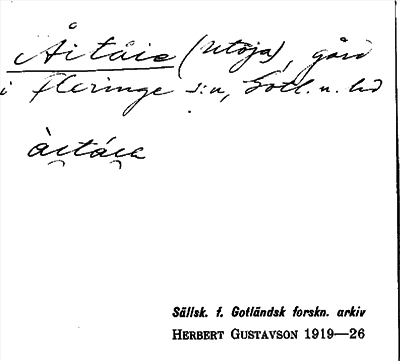 Åitåie (Utöja), gård
i Fleringe s:n, Gotl. n. hd
àitáia
Sällsk. f. Gotländsk forskn. arkiv
HERBERT GUSTAVSON 1919—26